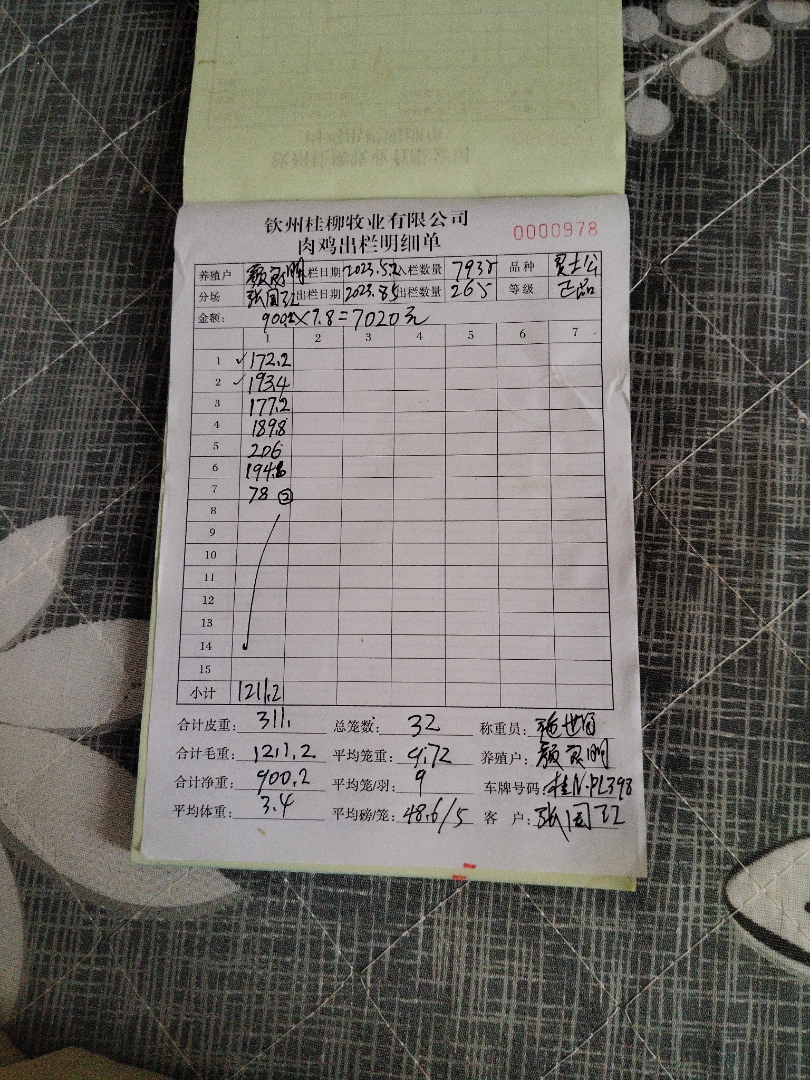 钦州桂柳牧业有限公司
肉鸡出栏明细单 0000978
养殖户 颜家明 入栏日期 2023.5.2 入栏数量 7935 品种
分场 张国 出栏日期 2023.8.5 出栏数量 265 等级 正品
金额: 900.2×7.8=7020元
1 2 3 4 5 6 7
1 ✓172.2
2 ✓193.4
3 177.2
4 189.8
5 206
6 194.6
7 78 ②
8
9
10
11
12
13
14
15
小计 1211.2
合计皮重: 311. 总笼数: 32 称重员:
合计毛重: 1211.2 平均笼重: 9.72 养殖户: 颜家明
合计净重: 900.2 平均笼/羽: 9 车牌号码: 桂N·PL398
平均体重: 3.4 平均磅/笼: 48.6/5 客 户: 张国